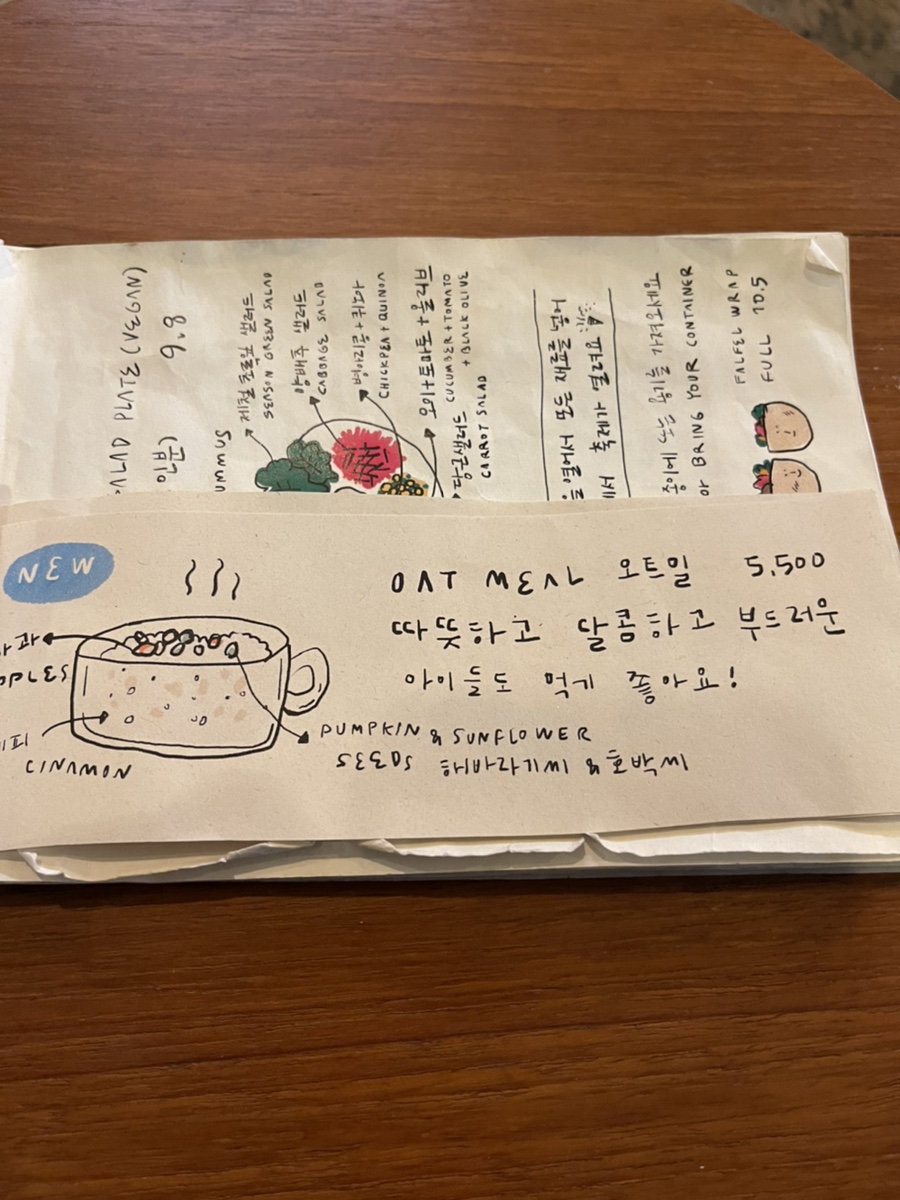 PLATE (VEGAN)
제철 초록잎 샐러드
SEASON GREEN SALAD
양배추 샐러드
CABBAGE SALAD
병아리콩+퀴노아
CHICKPEA + QUINOA
오이+토마토+올리브
CUCUMBER + TOMATO
+ BLACK OLIVE
당근샐러드
CARROT SALAD
모든 재료를
용기를 가져와주세요
BRING YOUR CONTAINER
FALFEL WRAP
FULL 10.5
NEW
OAT MEAL 오트밀 5,500
따뜻하고 달콤하고 부드러운
아이들도 먹기 좋아요!
PUMPKIN & SUNFLOWER
SEEDS 해바라기씨 & 호박씨
CINAMON